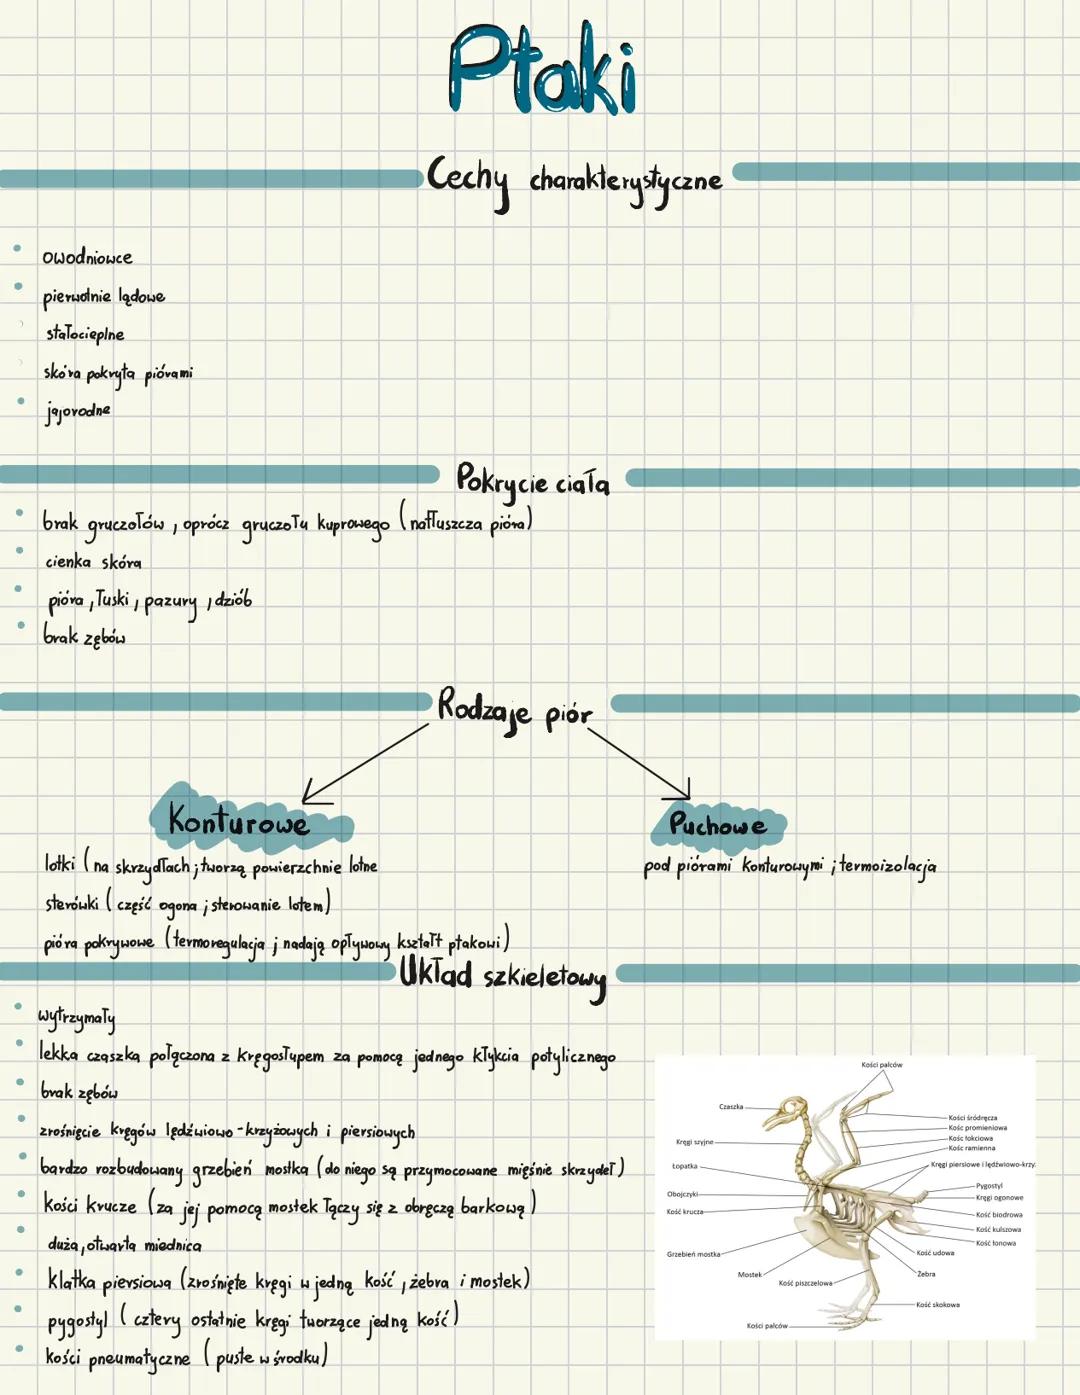 Ptaki
Cechy charakterystyczne
owodniowce
pierwotnie lądowe
stałocieplne
skóra pokryta piórami
jajorodne
Pokrycie ciała
brak gruczołów, oprócz gruczołu kuprowego (natłuszcza pióra)
cienka skóra
pióra, łuski, pazury, dziób
brak zębów
Rodzaje piór
Konturowe
Puchowe
lotki (na skrzydłach; tworzą powierzchnie lotne
pod piórami konturowymi; termoizolacja
sterówki (część ogona; sterowanie lotem)
pióra pokrywowe (termoregulacja; nadają opływowy kształt ptakowi)
Układ szkieletowy
wytrzymały
lekka czaszka połączona z kręgosłupem za pomocą jednego kłykcia potylicznego
brak zębów
zrośnięcie kręgów lędźwiowo-krzyżowych i piersiowych
bardzo rozbudowany grzebień mostka (do niego są przymocowane mięśnie skrzydeł)
kości krucze (za jej pomocą mostek łączy się z obręczą barkową)
duża, otwarta miednica
klatka piersiowa (zrośnięte kręgi w jedną kość, żebra i mostek)
pygostyl (cztery ostatnie kręgi tworzące jedną kość)
kości pneumatyczne (puste w środku)
Kości palców
Czaszka
Kości śródręcza
Kość promieniowa
Kość łokciowa
Kręgi szyjne
Kość ramienna
Łopatka
Kręgi piersiowe i lędźwiowo-krzy.
Pygostyl
Obojczyki
Kręgi ogonowe
Kość krucza
Kość biodrowa
Kość kulszowa
Kość łonowa
Grzebień mostka
Kość udowa
Mostek
Żebra
Kość piszczelowa
Kość skokowa
Kości palców